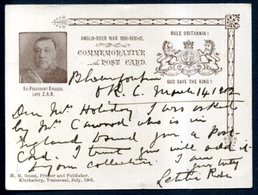 ANGLO-BOER WAR 1899-1900-01.
RULE BRITANNIA!
COMMEMORATIVE
POST CARD.
GOD SAVE THE KING!
EX-PRESIDENT KRUGER,
LATE Z.A.R.
Bloemfontein
O.R.C. 14 1902
Dear Mrs Holiday I was asked
by Mrs who is in
England to send you a Post
Card. I trust you will add it
to your collection. I am
yours truly
H. M. Guest, Printer and Publisher,
Klerksdorp, Transvaal, July, 1901.